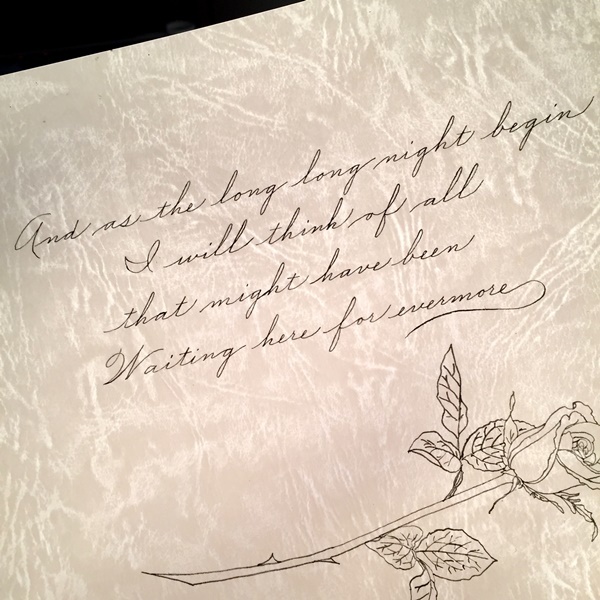 And as the long long night begin
I will think of all
that might have been
Waiting here for evermore